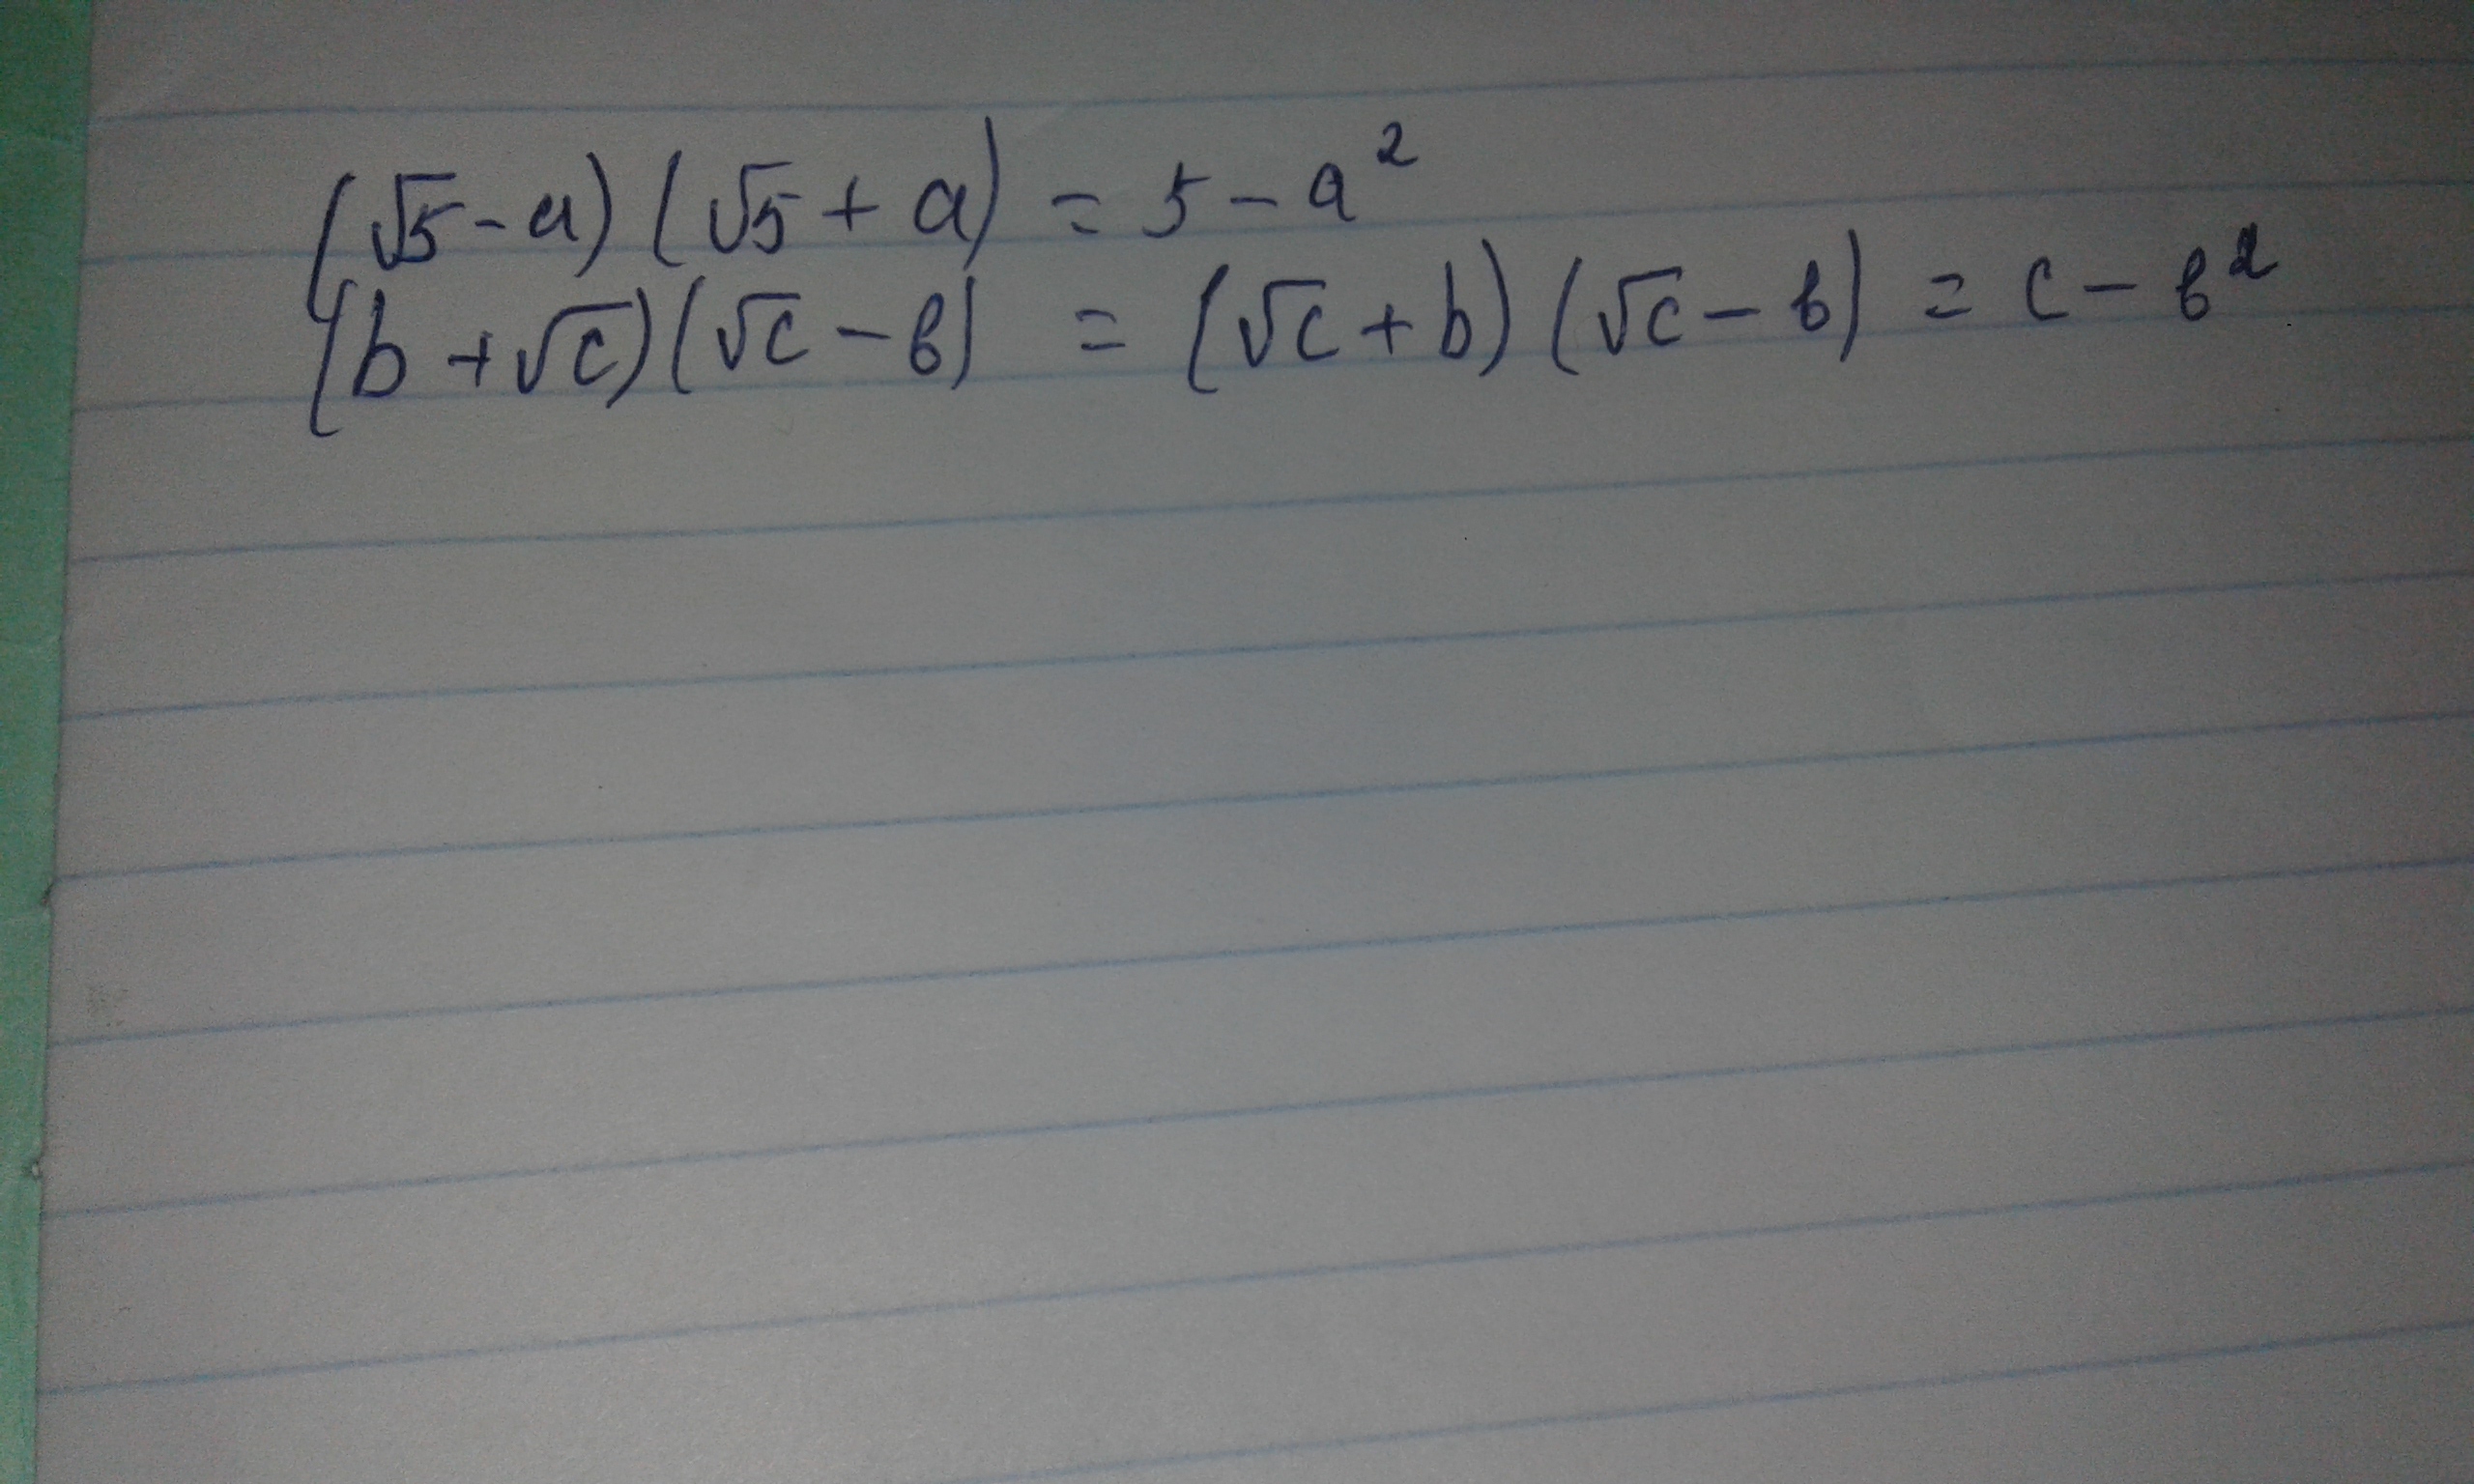 (√5 - a) (√5 + a) = 5 - a²
(b + √c) (√c - b) = (√c + b) (√c - b) = c - b²